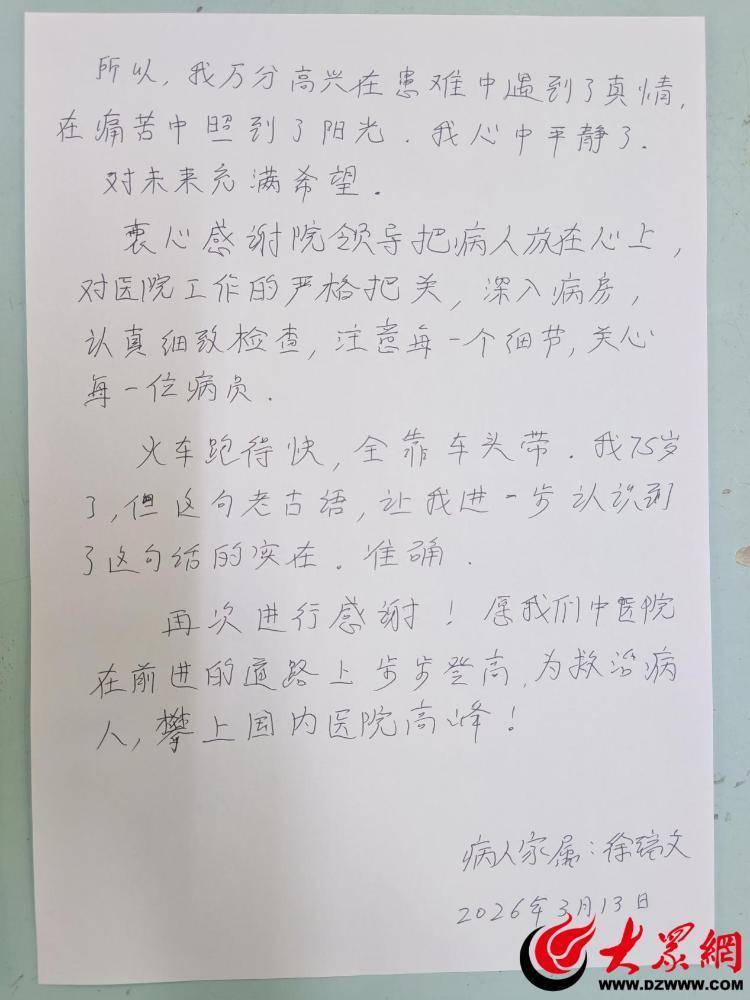 所以,我万分高兴在患难中遇到了真情,
在痛苦中照到了阳光.我心中平静了.
对未来充满希望.
衷心感谢院领导把病人放在心上,
对医院工作的严格把关,深入病房,
认真细致检查,注意每一个细节,关心
每一位病员.
火车跑得快,全靠车头带.我75岁
了,但这句老古语,让我进一步认识到
了这句话的实在.准确.
再次进行感谢!愿我们中医院
在前进的道路上步步登高,为救治病
人,攀上国内医院高峰!
病人家属:徐瑞文
2026年3月13日
大眾網
WWW.DZWWW.COM